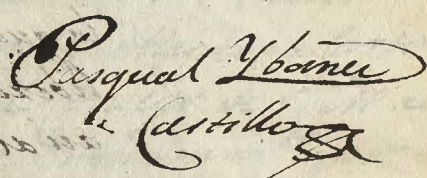 Pasqual Ybañez
Castillo